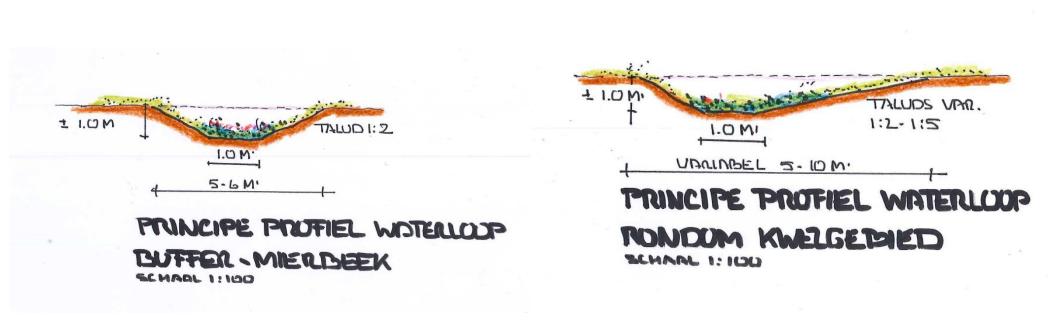 ± 1.0 M
TALUD 1:2
1.0 M'
5-6 M'
PRINCIPE PROFIEL WATERLOOP
BUFFER - MIERBEEK
SCHAAL 1:100
± 1.0 M'
TALUDS VAR.
1:2 - 1:5
1.0 M'
VARIABEL 5-10 M'
PRINCIPE PROFIEL WATERLOOP
RONDOM KWELGEBIED
SCHAAL 1:100